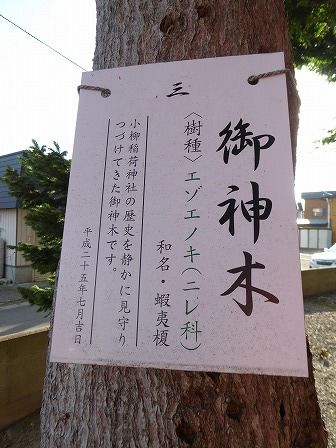 三
御神木
〈樹種〉エゾエノキ(ニレ科)
和名・蝦夷榎
小柳稲荷神社の歴史を静かに見守り
つづけてきた御神木です。
平成二十五年七月吉日